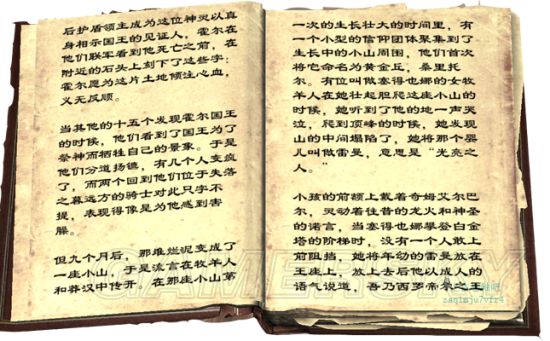 后护盾领主成为这位神灵以真
身相示国王的见证人，霍尔在
他们联军看到他死亡之前，在
附近的石头上刻下了这些字：
霍尔愿为这片土地倾注心血，
义无反顾。
当其他的十五个发现霍尔国王
的时候，他们看到了国王为了
祭神而牺牲自己的景象。于是
他们分道扬镳，有几个人变疯
了，而两个回到他们位于失落
之幕远方的骑士对此只字不
提，表现得像是为他感到害
臊。
但九个月后，那堆烂泥变成了
一座小山，于是流言在牧羊人
和莽汉中传开。在那座小山第
一次的生长壮大的时间里，有
一个小型的信仰团体聚集到了
生长中的小山周围，他们首次
将它命名为黄金丘，桑里托
尔。有位叫做塞得也娜的女牧
羊人在她壮起胆爬这座小山的
时候，她听到了他的地一声哭
泣，爬到顶峰的时候，她发现
山的中间塌陷了，她将那个婴
儿叫做雷曼，意思是“光亮之
人。”
小孩的前额上戴着奇姆艾尔巴
尔，灵动着往昔的龙火和神圣
的诺言，当塞得也娜攀登白金
塔的阶梯时，没有一个人敢上
前阻挡，她将年幼的雷曼放在
王座上，放上去后他以成人的
语气说道，吾乃西罗帝泉之王
GAMERSKY
zaqimju7vfr4